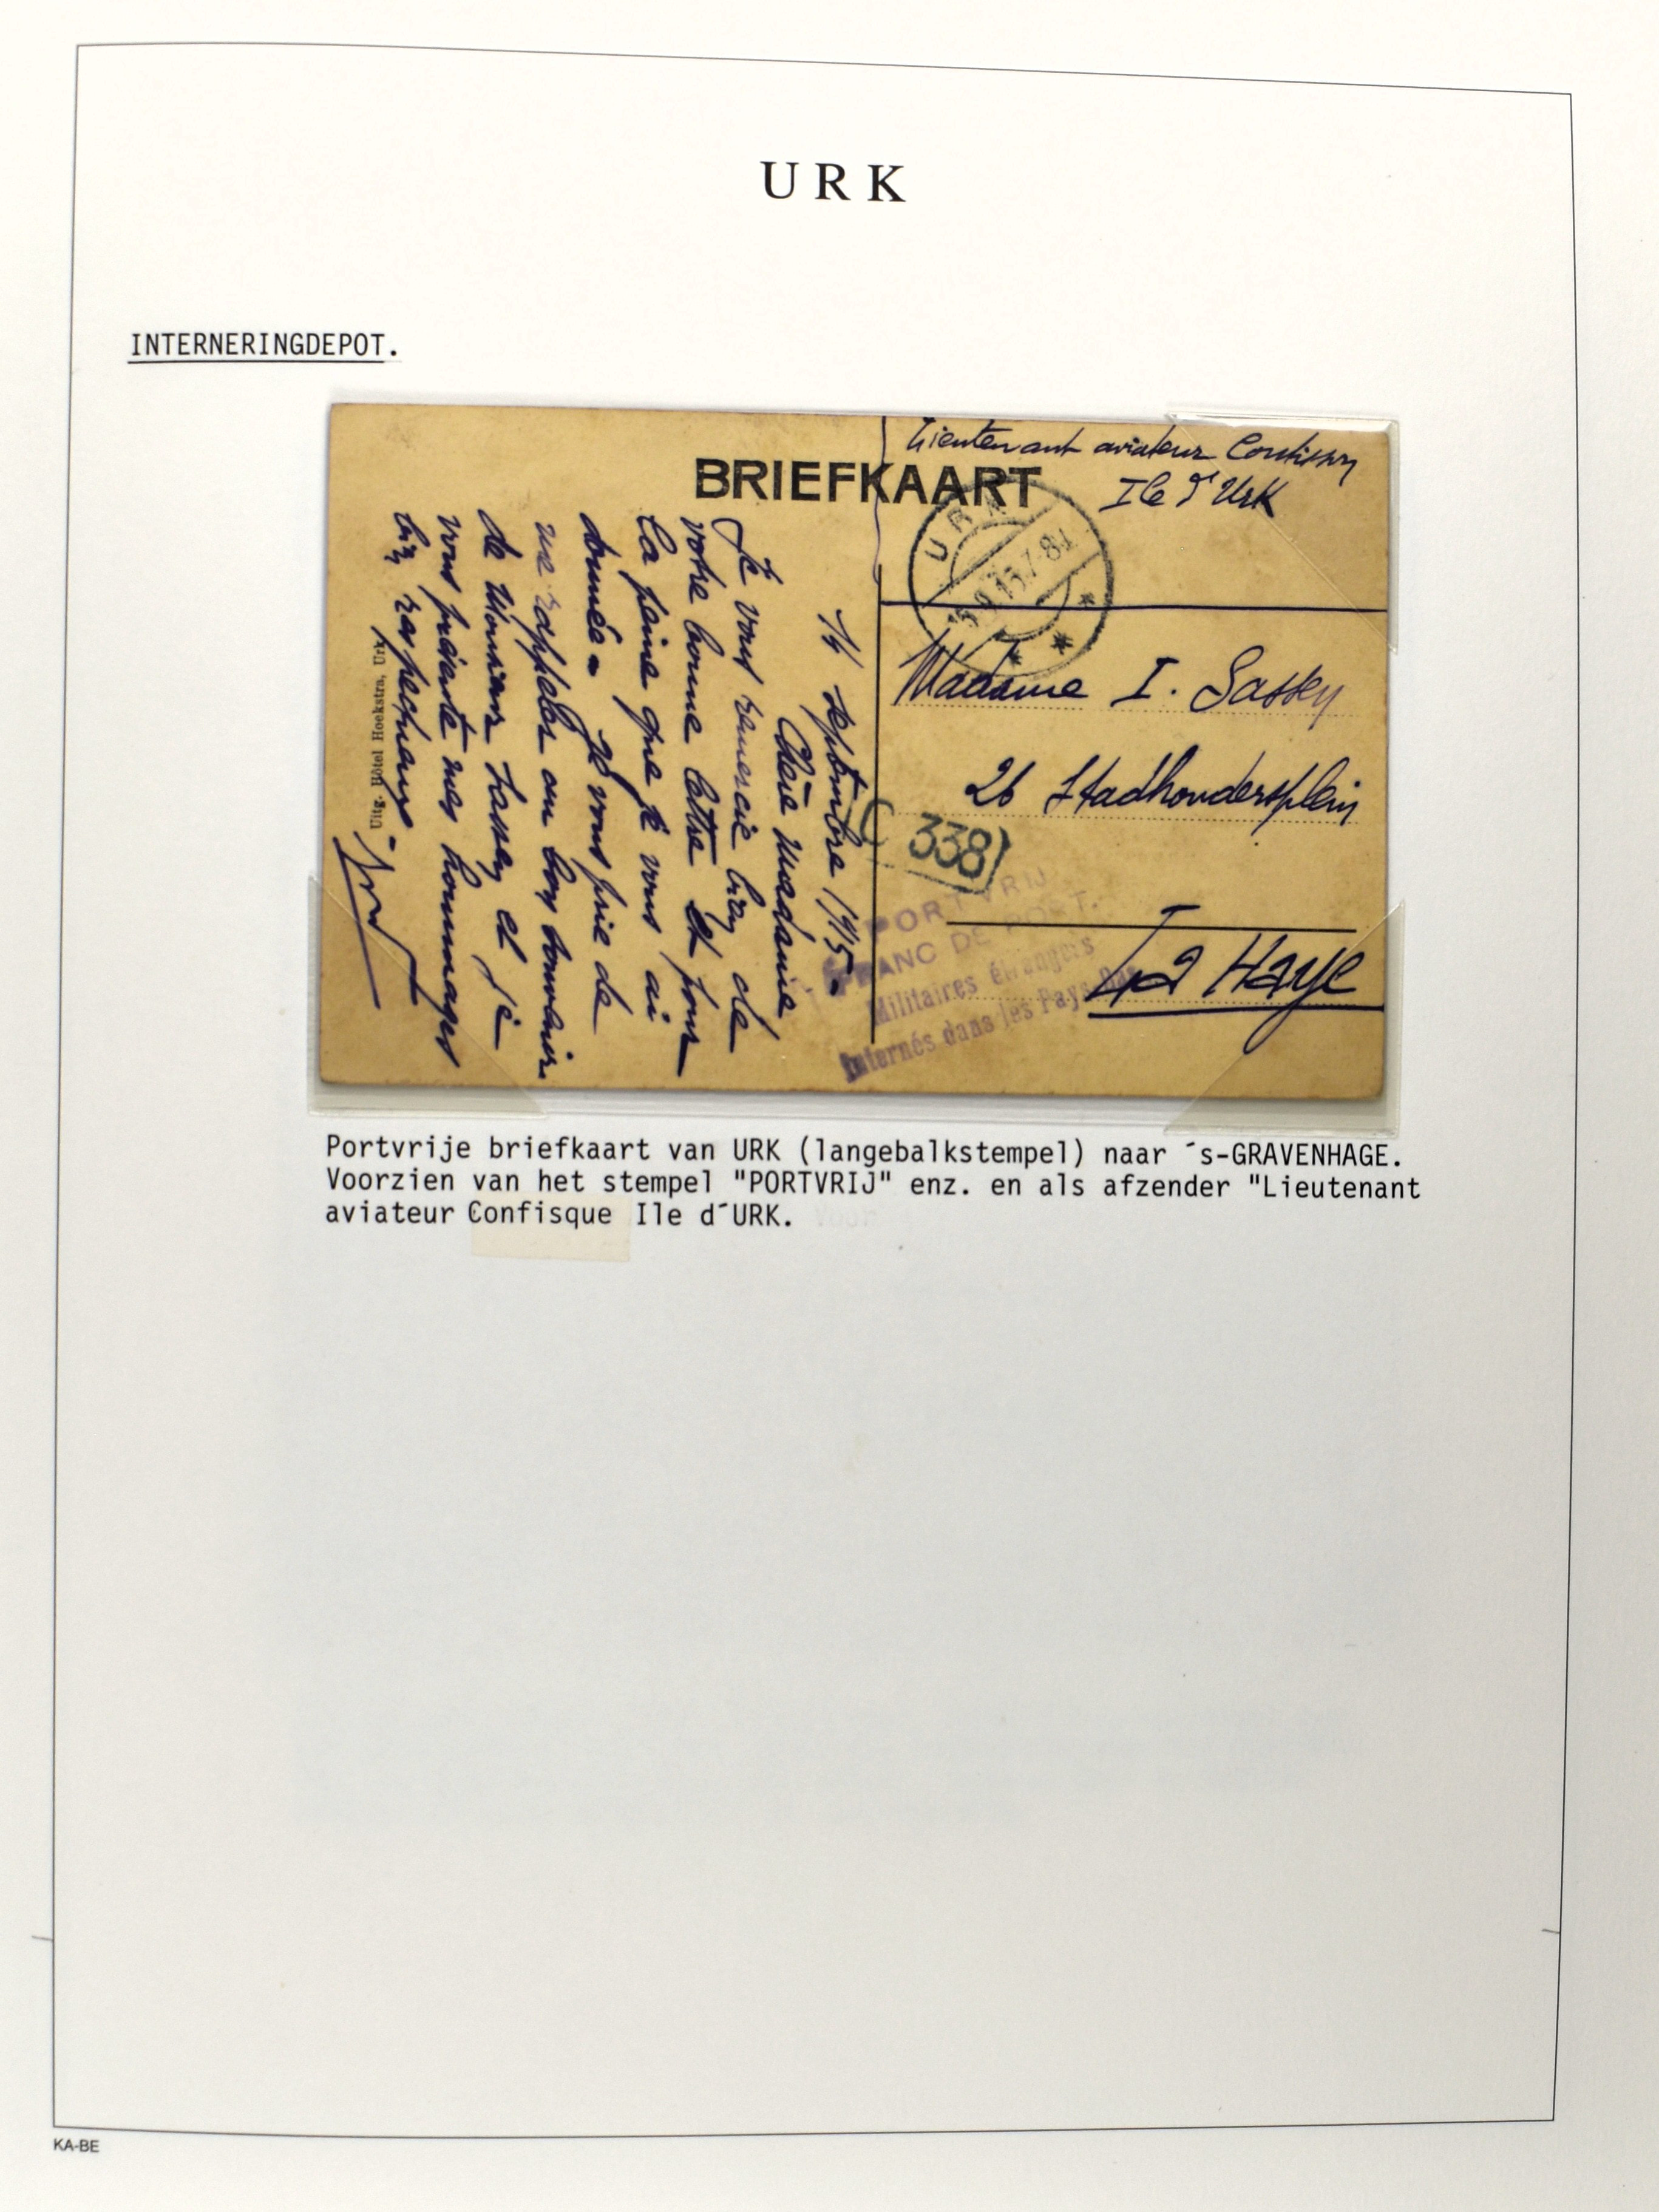 URK
INTERNERINGDEPOT.
BRIEFKAART
Lieutenant aviateur
Ile d'Urk
URK
Madame I. Sassey
26 Stadhoudersplein
La Haye
338
PORTVRIJ
FRANC DE PORT.
Militaires étrangers
Internés dans les Pays-Bas
14 septembre 1915.
Chère madame
Je vous remercie bien de
votre bonne lettre et pour
la peine que je vous ai
donnée. Je vous prie de
me rappeler au bon souvenir
de Monsieur Sassey et je
vous présente mes hommages
bien respectueux
Uitg. Hôtel Hoekstra, Urk.
Portvrije briefkaart van URK (langebalkstempel) naar ´s-GRAVENHAGE.
Voorzien van het stempel "PORTVRIJ" enz. en als afzender "Lieutenant
aviateur Confisque Ile d´URK.
KA-BE